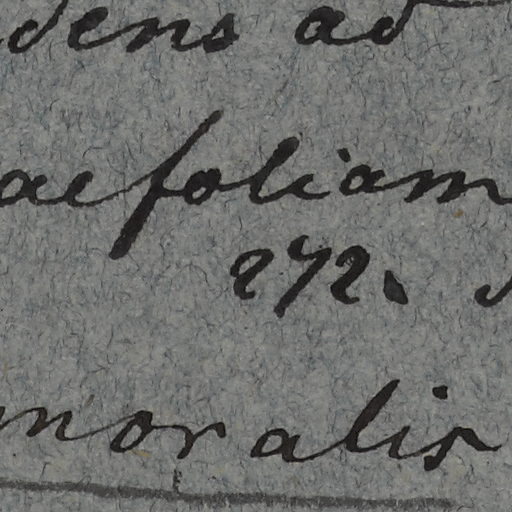 dens ad
aefoliam
272.
moralis